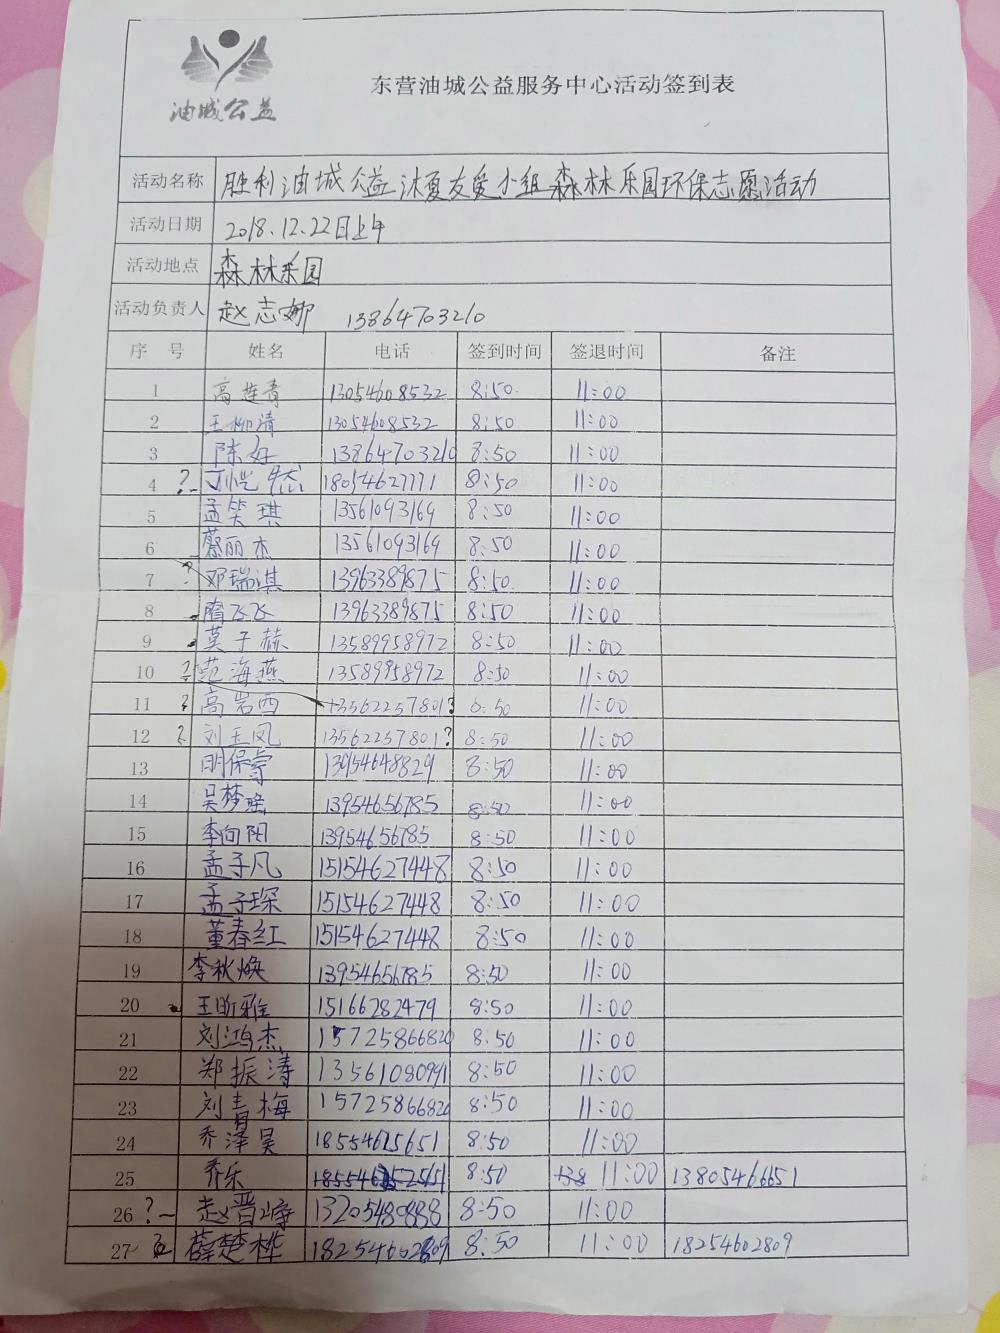 油城公益
东营油城公益服务中心活动签到表
活动名称 胜利油城公益沐夏友爱小组森林乐园环保志愿活动
活动日期 2018.12.22日上午
活动地点 森林乐园
活动负责人 赵志娜 13864703210
序号 姓名 电话 签到时间 签退时间 备注
1 高莲青 13054608532 8:50 11:00
2 王柳清 13054608532 8:50 11:00
3 陈好 13864703210 8:50 11:00
4 ? 18054627771 8:50 11:00
5 孟笑琪 13561093169 8:50 11:00
6 蔡丽杰 13561093169 8:50 11:00
7 ? 邓瑞淇 13963389875 8:50 11:00
8 隋飞飞 13963389875 8:50 11:00
9 莫子赫 13589958972 8:50 11:00
10 ? 范海燕 13589958972 8:50 11:00
11 ? 高岩西 13562257801? 8:50 11:00
12 ? 刘玉凤 13562257801? 8:50 11:00
13 明保睿 13954648829 8:50 11:00
14 吴梦瑶 13954656785 8:50 11:00
15 李向阳 13954656785 8:50 11:00
16 孟子凡 15154627448 8:50 11:00
17 孟子琛 15154627448 8:50 11:00
18 董春红 15154627448 8:50 11:00
19 李秋焕 13954656785 8:50 11:00
20 王昕雅 15166282479 8:50 11:00
21 刘鸿杰 15725866820 8:50 11:00
22 郑振涛 13561080991 8:50 11:00
23 刘青梅 15725866820 8:50 11:00
24 乔泽昊 18554625651 8:50 11:00
25 乔乐 8:50 138 11:00 13805466651
26 ? 赵晋峥 13205480888 8:50 11:00
27 薛楚桦 18254602809 8:50 11:00 18254602809